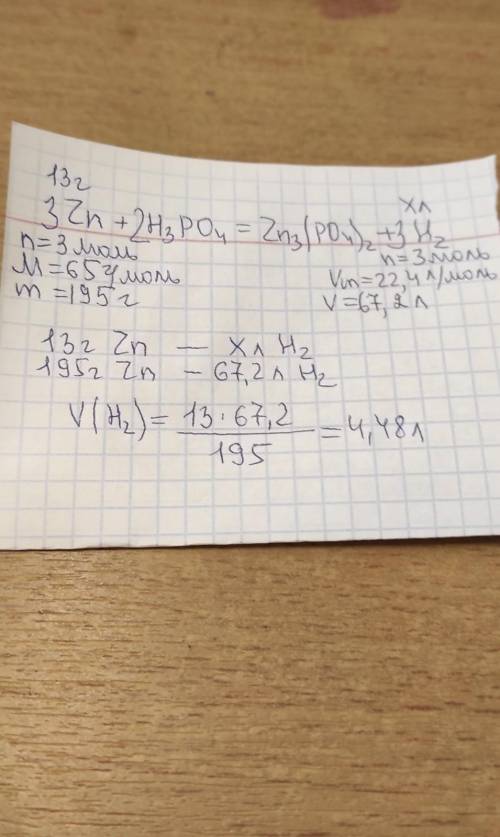 13г
xл
3Zn + 2H₃PO₄ = Zn₃(PO₄)₂ + 3H₂
n = 3 моль
n = 3 моль
M = 65 г/моль
Vm = 22,4 л/моль
m = 195 г
V = 67,2 л
13г Zn — xл H₂
195г Zn – 67,2л H₂
V(H₂) = 13·67,2 / 195 = 4,48л